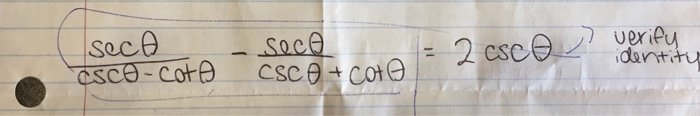 secθ/(cscθ-cotθ) - secθ/(cscθ+cotθ) = 2 cscθ verify
identity